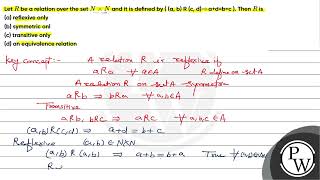 Let R be a relation over the set N × N and it is defined by ( (a, b) R (c, d)⇒a+d=b+c ). Then R is
(a) reflexive only
(b) symmetric onl
(c) transitive only
(d) an equivalence relation
Key concept:- A relation R is reflexive if
aRa ∀ a∈A R define on set A
A relation R on set A symmetric
aRb ⇒ bRa ∀ a,b ∈ A
Transitive
aRb, bRc ⇒ aRc ∀ a,b,c ∈ A
(a,b)R(c,d) ⇒ a+d = b+c
Reflexive (a,b) ∈ N×N
(a,b) R (a,b) ⇒ a+b = b+a True ∀ (a,b)∈N×N
R
PW